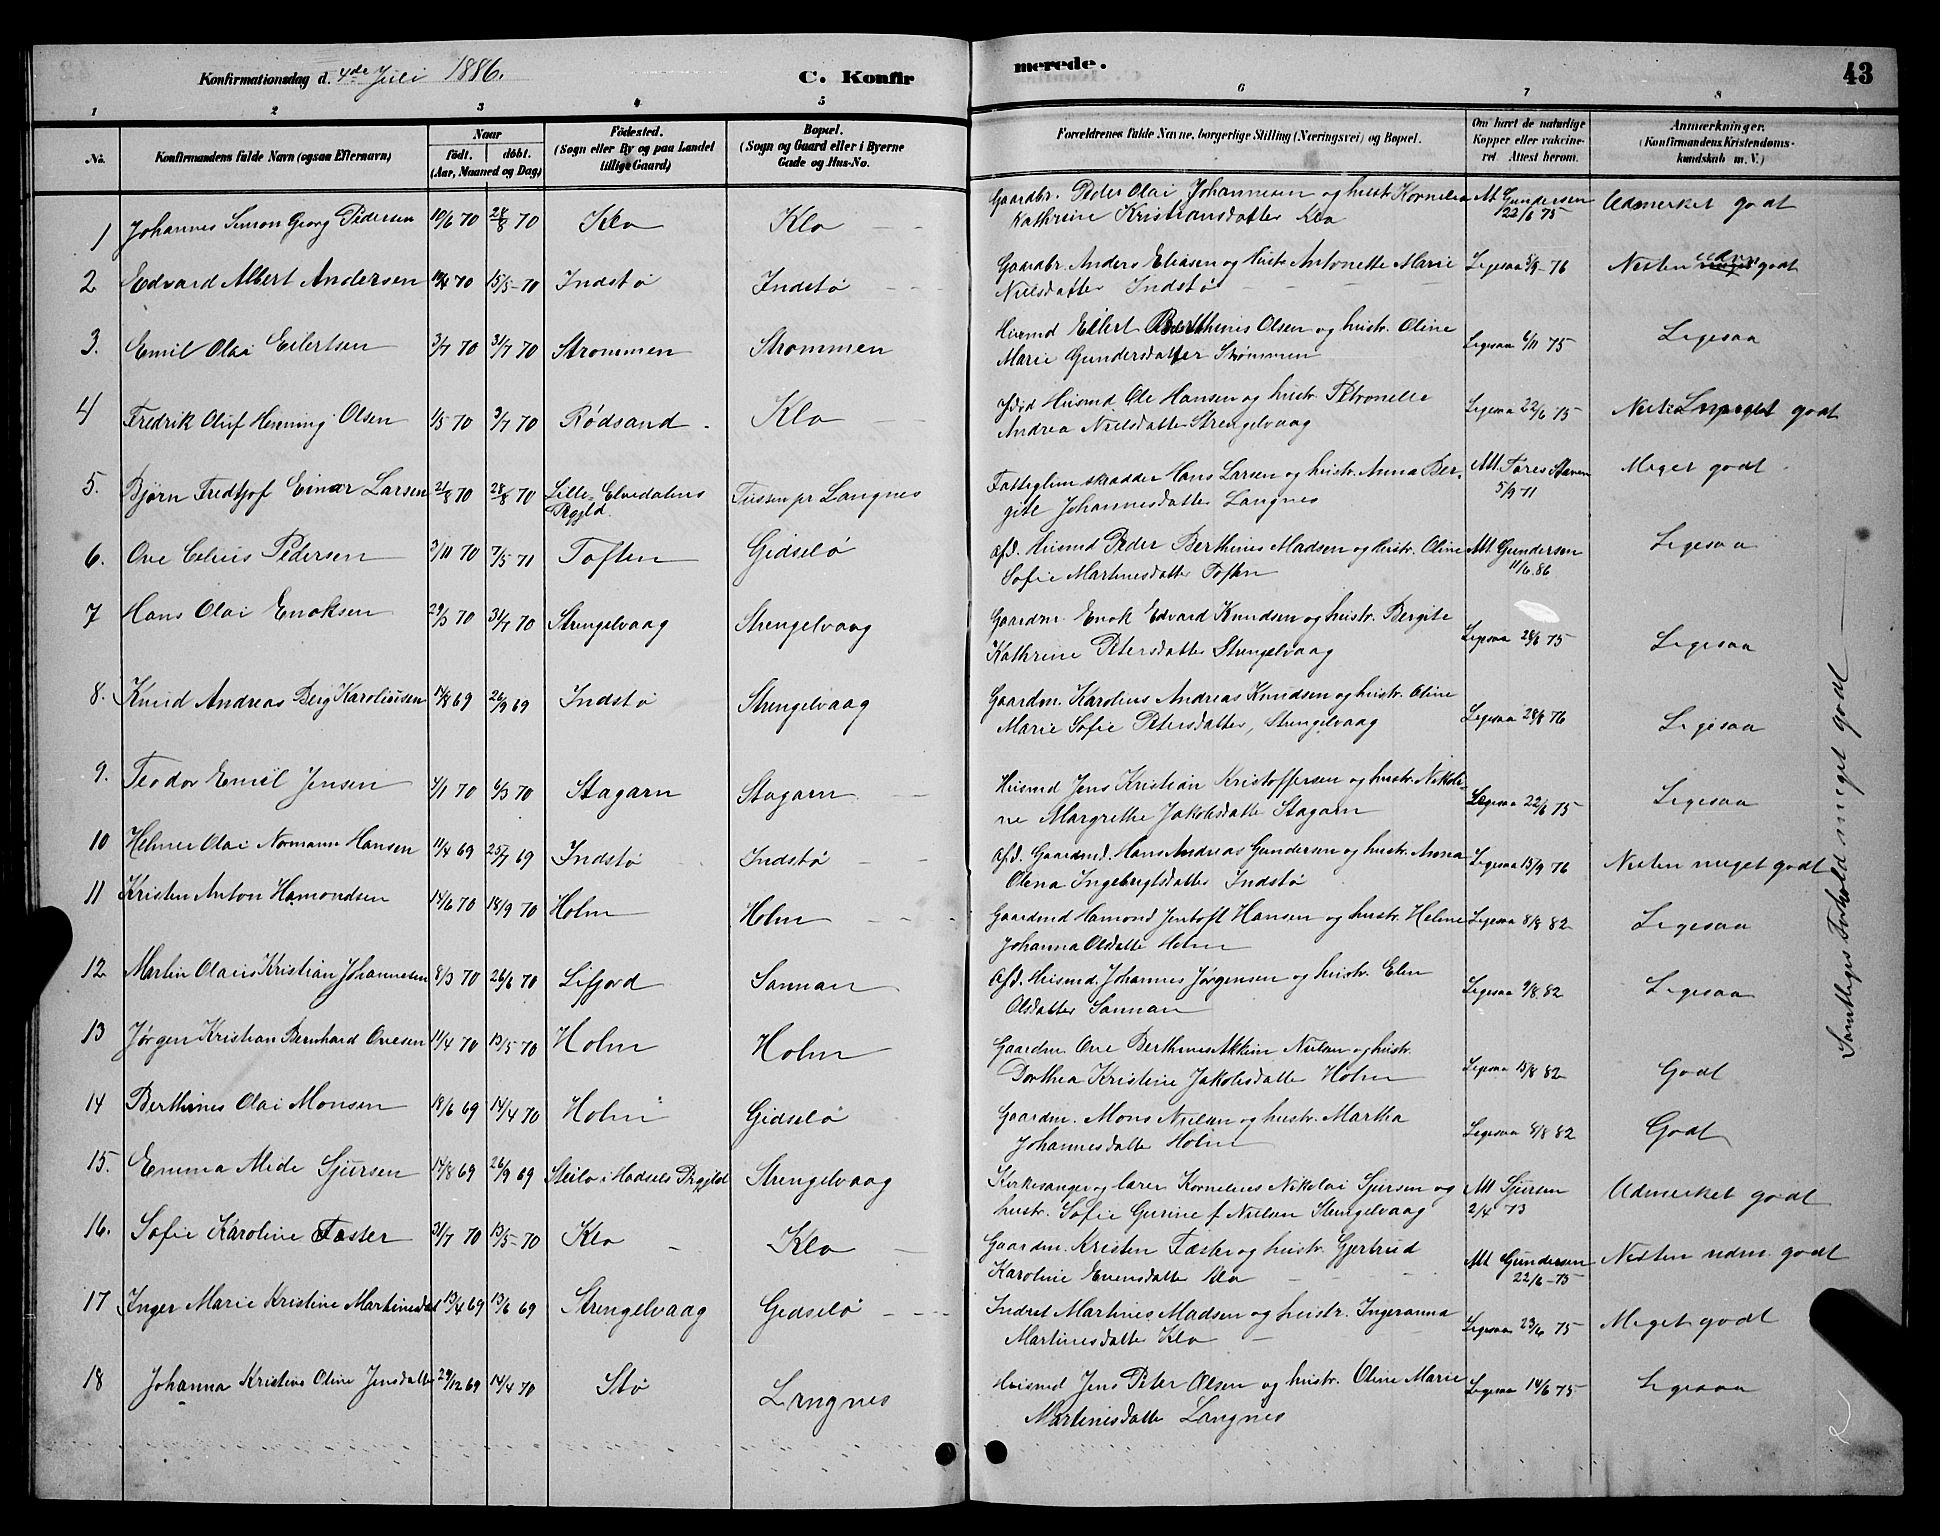 Konfirmationsdag d. 4de Juli 1886.
C. Konfir
merede.
43
1 2 3 4 5 6 7 8
No.
Konfirmandens fulde Navn (ogsaa Efternavn)
Naar
født. døbt.
(Aar, Maaned og Dag)
Fødested.
(Sogn eller By og paa Landet
tillige Gaard)
Bopæl.
(Sogn og Gaard eller i Byerne
Gade og Hus-No.
Forældrenes fulde Navne, borgerlige Stilling (Næringsvei) og Bopæl.
Om havt de naturlige
Kopper eller vakcine-
ret. Attest herom.
Anmærkninger.
(Konfirmandens Kristendoms-
kundskab m. V.)
1 Johannes Simon Georg Pedersen 10/6 70 28/8 70 Klo Klo Gaardbr. Peder Olai Johannesen og hustr. Kornelia Att Gundersen Udmerket godt
Kathrine Kristiansdatter Klo 22/6 75
2 Edvard Albert Andersen 70 15/5 70 Indstø Indstø Gaardbr. Anders Eliasen og hustr. Antonette Marie Ligesaa 5/9 76 Nesten udm godt
Nielsdatter Indstø
3. Emil Olai Eilertsen 3/7 70 31/7 70 Strommen Strommen Husmd Eilert Berthines Olsen og hustr. Oline Ligesaa 6/11 75 Ligesaa
Marie Gundersdatter Strømmen
4 Fredrik Oluf Henning Olsen 1/5 70 3/7 70 Rødsand Klo Husmd Ole Hansen og hustr. Petronelle Ligesaa 22/6 75 meget godt
Andrea Nielsdatter Strengelvaag
5. Bjørn Fredtjof Einar Larsen 2/8 70 28/8 70 Lille-Elvedalens Tussen pr Langnes Fattiglem skrædder Hans Larsen og hustr. Anna Ber- Att. Meget godt
Pgjld. gite Johannesdatter Langnes 5/9 71
6. Ove Celius Pedersen 3/11 70 7/5 71 Toften Gidselø Afd. Husmd Peder Berthines Madsen og hustr. Oline Att Gundersen Ligesaa
Sofie Martinesdatter Toften 11/6.86
7 Hans Olai Enoksen 29/3 70 31/7 70 Strengelvaag Strengelvaag Gaardm. Enok Edvard Knudsen og hustr. Bergite Ligesaa 28/6 75 Ligesaa
Kathrine Petersdatter Strengelvaag
8. Knud Andreas Berg Karoliusen 17/8 69 26/9 69 Indstø Strengelvaag Gaardm. Karolius Andreas Knudsen og hustr. Oline Ligesaa 28/8 76 Ligesaa
Marie Sofie Petersdatter, Strengelvaag
9. Teodor Emil Jensen 4/1 70 6/3 70 Stagarn Stagarn Husmd Jens Kristian Kristoffersen og hustr. Nikoli- Ligesaa 22/6 75 Ligesaa
ne Margrethe Jakobsdatter Stagarn
10 Helmer Olai Normann Hansen 11/4 69 25/7 69 Indstø Indstø Afd. Gaardmd. Hans Andreas Gundersen og hustr. Anna Ligesaa 13/9 76 Nesten meget godt
Olena Ingebrigtsdatter Indstø
11 Kristen Anton Hamondsen 14/6 70 18/9 70 Holm Holm Gaardmd Hamond Jentoft Hansen og hustr. Helene Ligesaa 8/8 82 Ligesaa
Johanna Olsdatter Holm
12 Martin Olaus Kristian Johannesen 8/3 70 26/6 70 Lifjord Sannan Afd. Husmd. Johannes Jørgensen og hustr. Elen Ligesaa 9/8.82 Ligesaa
Olsdatter Sannan
13 Jørgen Kristian Bernhard Ovesen 11/4 70 13/5 70 Holm Holm Gaardm. Ove Berthines Nielsen og hustr. Ligesaa 13/8 82 Godt
Dorthea Kristine Jakobsdatter Holm
14 Berthines Olai Monsen 18/6 69 14/4 70 Holm Gidselø Gaardm. Mons Nielsen og hustr. Martha Ligesaa 8/8 82 Godt
Johannesdatter Holm
15. Emma Alide Sjursen 14/8 69 26/9 69 Steilo i Hadsels Prgjld Strengelvaag Kirkesanger og lærer Kornelius Nikolai Sjursen og Att Sjursen Udmerket godt
hustr. Sofie Gurine f. Nielsen Strengelvaag 2/4 73
16. Sofie Karoline Fæster 31/7 70 13/5 70 Klo Klo Gaardm. Kristen Fæster og hustr. Gjertrud Att Gundersen Nesten udm. godt
Karoline Evensdatter Klo 22/6-75
17 Inger Marie Kristine Martinesdat 13/4 69 13/6 69 Strengelvaag Gidselø Indret Martines Madsen og hustr. Ingeranna Ligesaa 23/6 75 Meget godt
Martinesdatter Klo
18 Johanna Kristine Oline Jensdatter 29/12 69 14/4 70 Stø Langnes Husmd Jens Peter Olsen og hustr. Oline Marie Ligesaa 14/6 75 Ligesaa
Martinesdatter Langnes
Samtliges Forhold meget godt